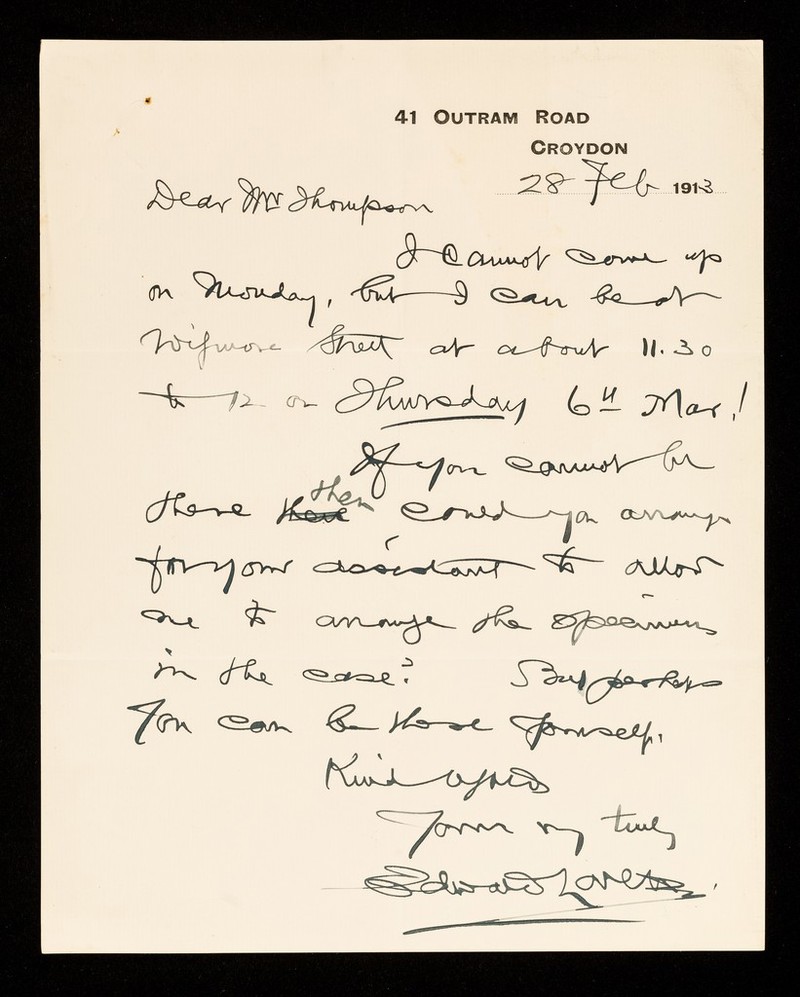 41 OUTRAM ROAD
CROYDON
28 Feb 1913
Dear Mr Thompson
I cannot come up
on Monday, but I can be at
Wigmore Street at about 11.30
to 12 on Thursday 6th Mar!
If you cannot be
there then could you arrange
for your assistant to allow
me to arrange the specimens
in the case? But perhaps
You can be there yourself.
Kind regards
Yours very truly
Edward Lovett.